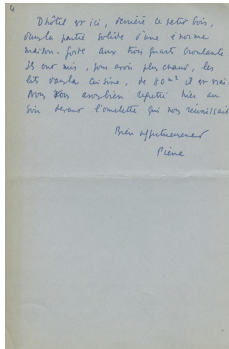 D'hôtel est ici, derrière ce petit bois,
dans la partie solide d'une énorme
maison-forte aux trois quarts croulante
Ils ont mis, pour avoir plus chaud, les
lits dans la cuisine, de 80 m² il est vrai.
Nous vous avons bien regretté hier au
soir devant l'omelette qui nous réunissait
Bien affectueusement
Pierre